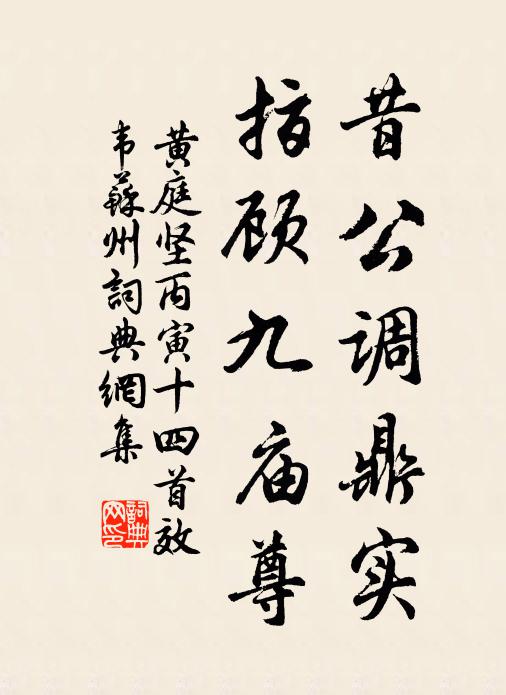 昔公调鼎实
指顾九庙尊
黄庭坚丙寅十四首效
韦苏州詞典網集
詞典
网印